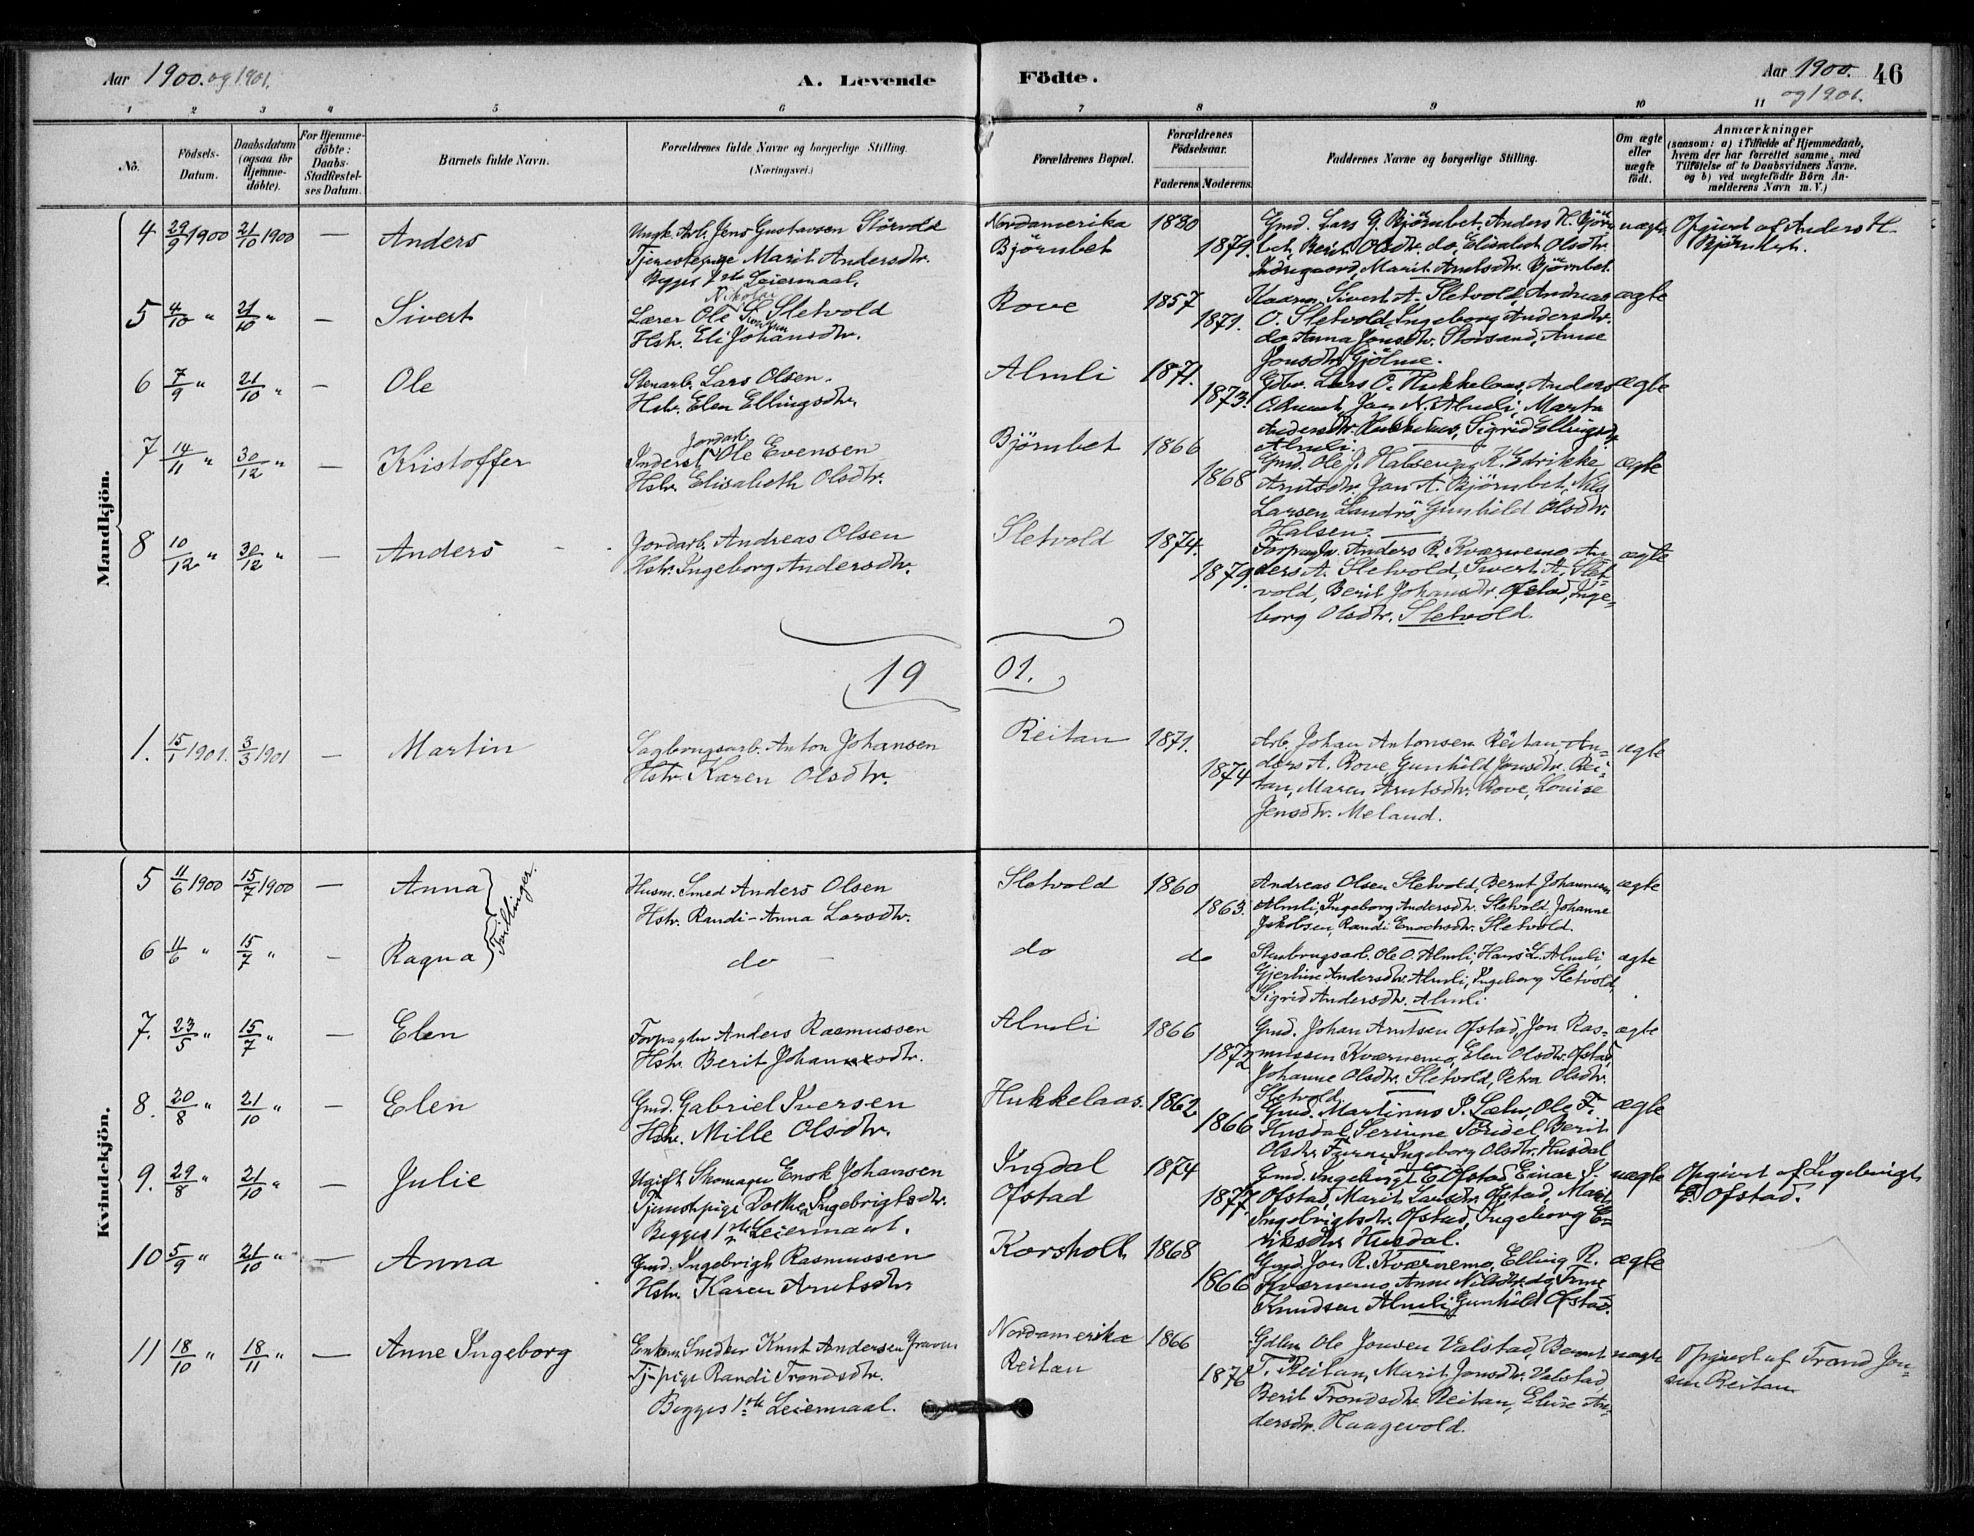 Aar 1900. og 1901.
A. Levende
Födte.
Aar 1900. 46
og 1901.
1 2 3 4 5 6 7 8 9 10 11
No.
Födsels-
Datum.
Daabsdatum
(ogsaa för
Hjemme-
döbte).
For Hjemme-
döbte:
Daabs-
Stadfæstel-
ses Datum.
Barnets fulde Navn.
Forældrenes fulde Navne og borgerlige Stilling.
(Næringsvei.)
Forældrenes Bopæl.
Forældrenes
Födselsaar.
Faderens. Moderens.
Faddernes Navne og borgerlige Stilling.
Om ægte
eller
uægte
födt.
Anmærkninger
(saasom: a) i Tilfælde af Hjemmedaab,
hvem der har forrettet samme, med
Tilföielse af to Daabsvidners Navne.
og b) ved uægtefödte Börn An-
melderens Navn m. V.)
Mandkjön.
4 29/9 1900 21/10 1900 — Anders
Ungk. Arb. Jens Gustavsen Störvold
Tjenestepige Marit Andersdtr.
Begges 1ste Leiermaal.
Nordamerika 1880
Björnbet 1879.
Gmd. Lars G. Björnbet, Anders H. Björn-
bet, Berit Olsdtr. do, Elisabet Olsdtr.
Indregaard, Marit Arntsdtr. Björnbet.
uægte
Opgivet af Anders H.
Björnbet.
5 4/10 " 21/10 " — Sivert
Nikolai
Lærer Ole S. Sletvold
Hstr. Eli Johansdtr.
Rove 1857
1871.
Kaarm. Sivert A. Sletvold, Andreas
O. Sletvold, Ingeborg Andersdtr.
do Anna Jonsdtr. Storsand, Anne
Jonsdtr. Gjölme.
ægte
6 7/9 " 21/10 " — Ole
Stenarb. Lars Olsen.
Hstr. Elen Ellingsdtr.
Almli 1871.
1873.
Gbr. Lars O. Hukkelaas, Anders
Jon N. Almli, Marta
Andersdtr. Hukkelaas, Sigrid Ellingsdtr.
Almli.
ægte
7 14/11 " 30/12 " — Kristoffer
Jordarb.
Inderst Ole Evensen
Hstr. Elisabeth Olsdtr.
Björnbet 1866
1868
Gmd. Ole J. Halsen, K. Edrikke
Arntsdtr. Jon A. Björnbet, Nils
Larsen Landrö, Gunhild Olsdtr.
Halsen.
ægte
8 10/12 " 30/12 " — Anders
Jordarb. Andreas Olsen
Hstr. Ingeborg Andersdtr.
Sletvold 1874.
1879.
Forpagtr. Anders R. Kværnemo, An-
ders A. Sletvold, Sivert A. Slet-
vold, Berit Johansdtr. Ofstad, Inge-
borg Olsdtr. Sletvold.
ægte
19 01.
1. 15/1 1901. 3/3 1901 — Martin
Sagbrugsarb. Anton Johansen
Hstr. Karen Olsdtr.
Reitan 1871.
1874
Arb. Johan Antonsen Reitan, An-
ders A. Rove, Gunhild Jonsdtr. Rei-
tan, Maren Arntsdtr. Rove, Louise
Jensdtr. Meland.
ægte
Kvindekjön.
5 11/6 1900 15/7 1900 — Anna
Tvillinger.
Husm. Smed Anders Olsen
Hstr. Randi-Anna Larsdtr.
Sletvold 1860
1863.
Andreas Olsen Sletvold, Bernt Johannesen
Almli, Ingeborg Andersdtr. Sletvold, Johanne
Jakobsen, Randi Enochsdtr. Sletvold.
ægte
6 11/6 " 15/7 " — Ragna
do
do do
Stenbrugsarb. Ole O. Almli, Hans L. Almli
Gjertine Andersdtr. Almli, Ingeborg Sletvold,
Sigrid Andersdtr. Almli
ægte
7. 23/5 " 15/7 " — Elen
Forpagter Anders Rasmussen
Hstr. Berit Johannesdtr.
Almli 1866
1872
Gmd. Johan Arntsen Ofstad, Jon Ras-
mussen Kværnemo, Elen Olsdtr. Ofstad,
Johanne Olsdtr. Sletvold, Petra Olsdtr.
Sletvold
ægte
8. 20/8 " 21/10 " — Elen
Gmd. Gabriel Iversen
Hstr. Mille Olsdtr.
Hukkelaas. 1862
1866
Gmd. Martinus P. Ole F.
Husdal, Serinne Berit
Olsdtr. Ingeborg Olsdtr. Husdal
ægte
9. 29/8 " 21/10 " — Julie
Ugift Skomager Enok Johansen
Tjenestpige Dorthea Ingebrigtsdtr.
Begges 1ste Leiermaal.
Ingdal 1874
Ofstad 1877.
Gmd. Ingebrigt E. Ofstad, Einar I.
Ofstad, Marit Larsdtr. Ofstad, Marit
Ingebrigtsdtr. Ofstad, Ingeborg E-
riksdtr. Husdal.
uægte
Opgivet af Ingebrigt
E. Ofstad.
10 5/9 " 21/10 " — Anna
Gmd. Ingebrigt Rasmussen
Hstr. Karen Arntsdtr.
Korsholt 1868
1866
Gmd. Jon R. Kværnemo, Elling R.
Kværnemo, Anne Nilsdtr. do, Trine
Knudsen Almli, Gunhild Ofstad.
ægte
11 18/10 " 18/11 " — Anne Ingeborg
Enkem. Snedker Knut Andersen Graven
Tj.-pige Randi Trondsdtr.
Begges 1ste Leiermaal.
Nordamerika 1866
Reitan 1876
Gdbr. Ole Jonsen Valstad, Bernt
T. Reitan, Marit Jonsdtr. Valstad,
Berit Trondsdtr. Reitan, Elise An-
dersdtr. Haagevold.
uægte
Opgivet af Trond Jon-
sen Reitan.